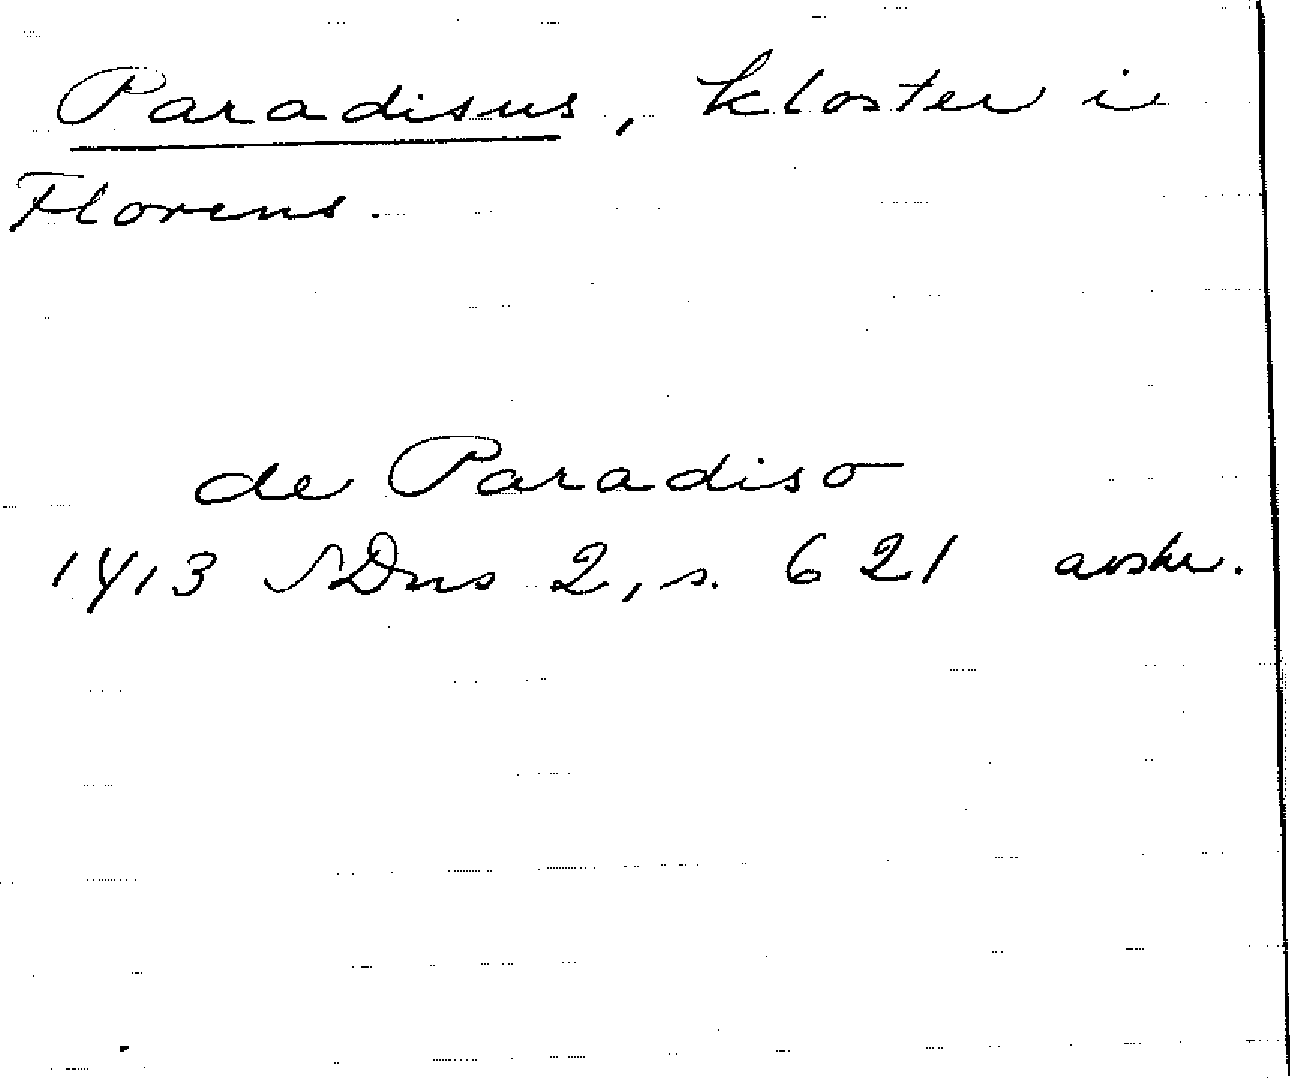 Paradisus, kloster i
Florens.
de Paradiso
1413 SDns 2, s. 621 avskr.